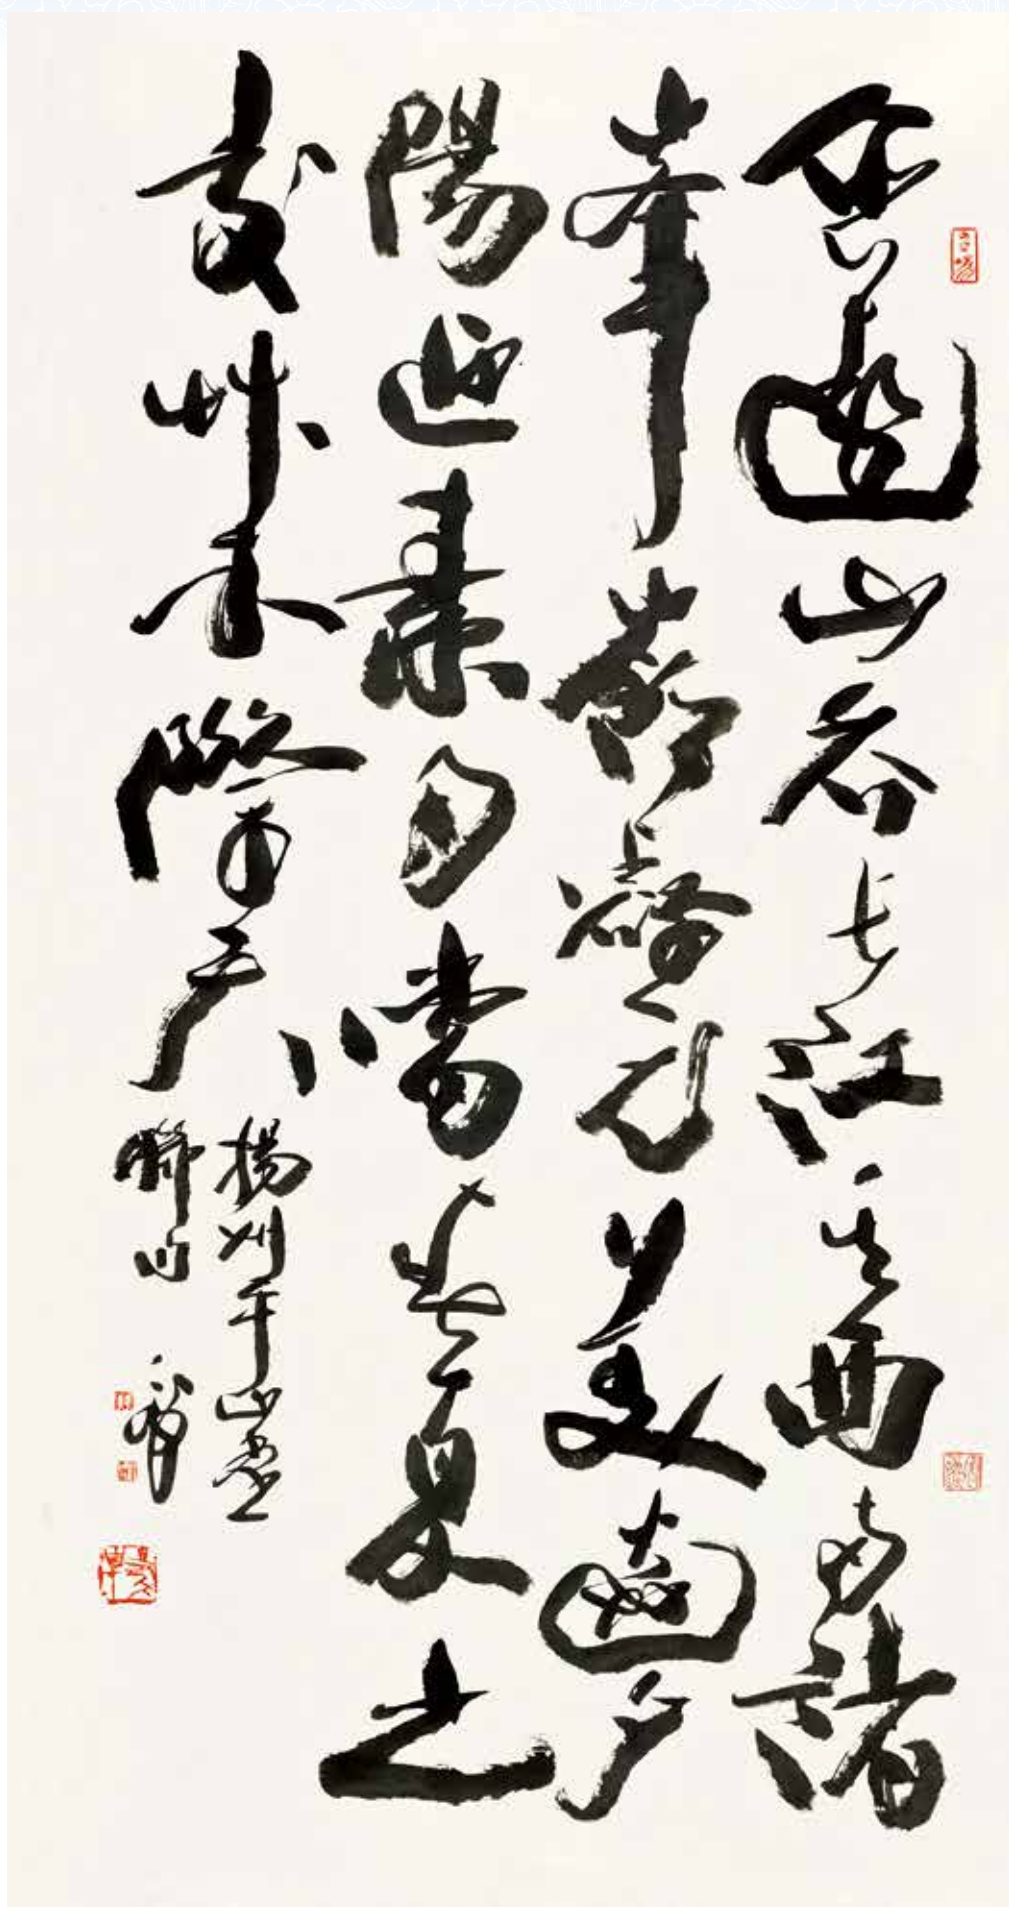 含遠山吞長江其西南諸
峯壑尤美送夕
陽迎素月當春夏之
交艸木際天
揚州平山堂
聯句